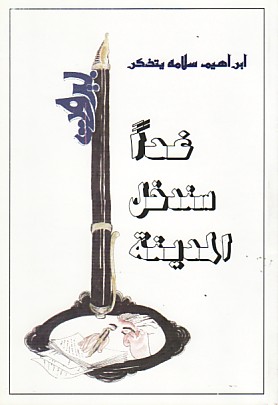 ابراهيم سلامه يتذكر
بيروت
غداً
سندخل
المدينة